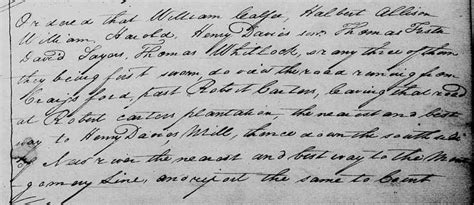 Ordered that William Calfee, Halbert Allison
William, Harold, Henry Davies senr. Thomas Foster
David Sayers, Thomas Whitlock, or any three of them
they being first sworn do via the road running from
Craigs ford, past Robert Carters, leaving that road
at Robert Carters plantation, the nearest and best
way to Henry Davies Mill, thence down the south side
New river the nearest and best way to the Mont
gomery Line, and report the same to Court